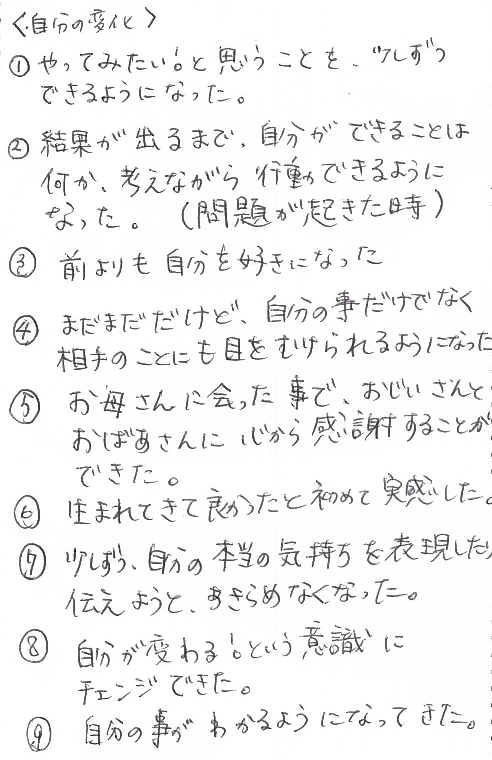 〈自分の変化〉
① やってみたい!と思うことを、少しずつ
できるようになった。
② 結果が出るまで、自分ができることは
何か、考えながら行動できるように
なった。(問題が起きた時)
③ 前よりも自分を好きになった
④ まだまだだけど、自分の事だけでなく
相手のことにも目をむけられるようになった
⑤ お母さんに会った事で、おじいさんと
おばあさんに心から感謝することが
できた。
⑥ 生まれてきて良かったと初めて実感した。
⑦ 少しずつ、自分の本当の気持ちを表現したり
伝えようと、あきらめなくなった。
⑧ 自分が変わる!という意識に
チェンジできた。
⑨ 自分の事がわかるようになってきた。